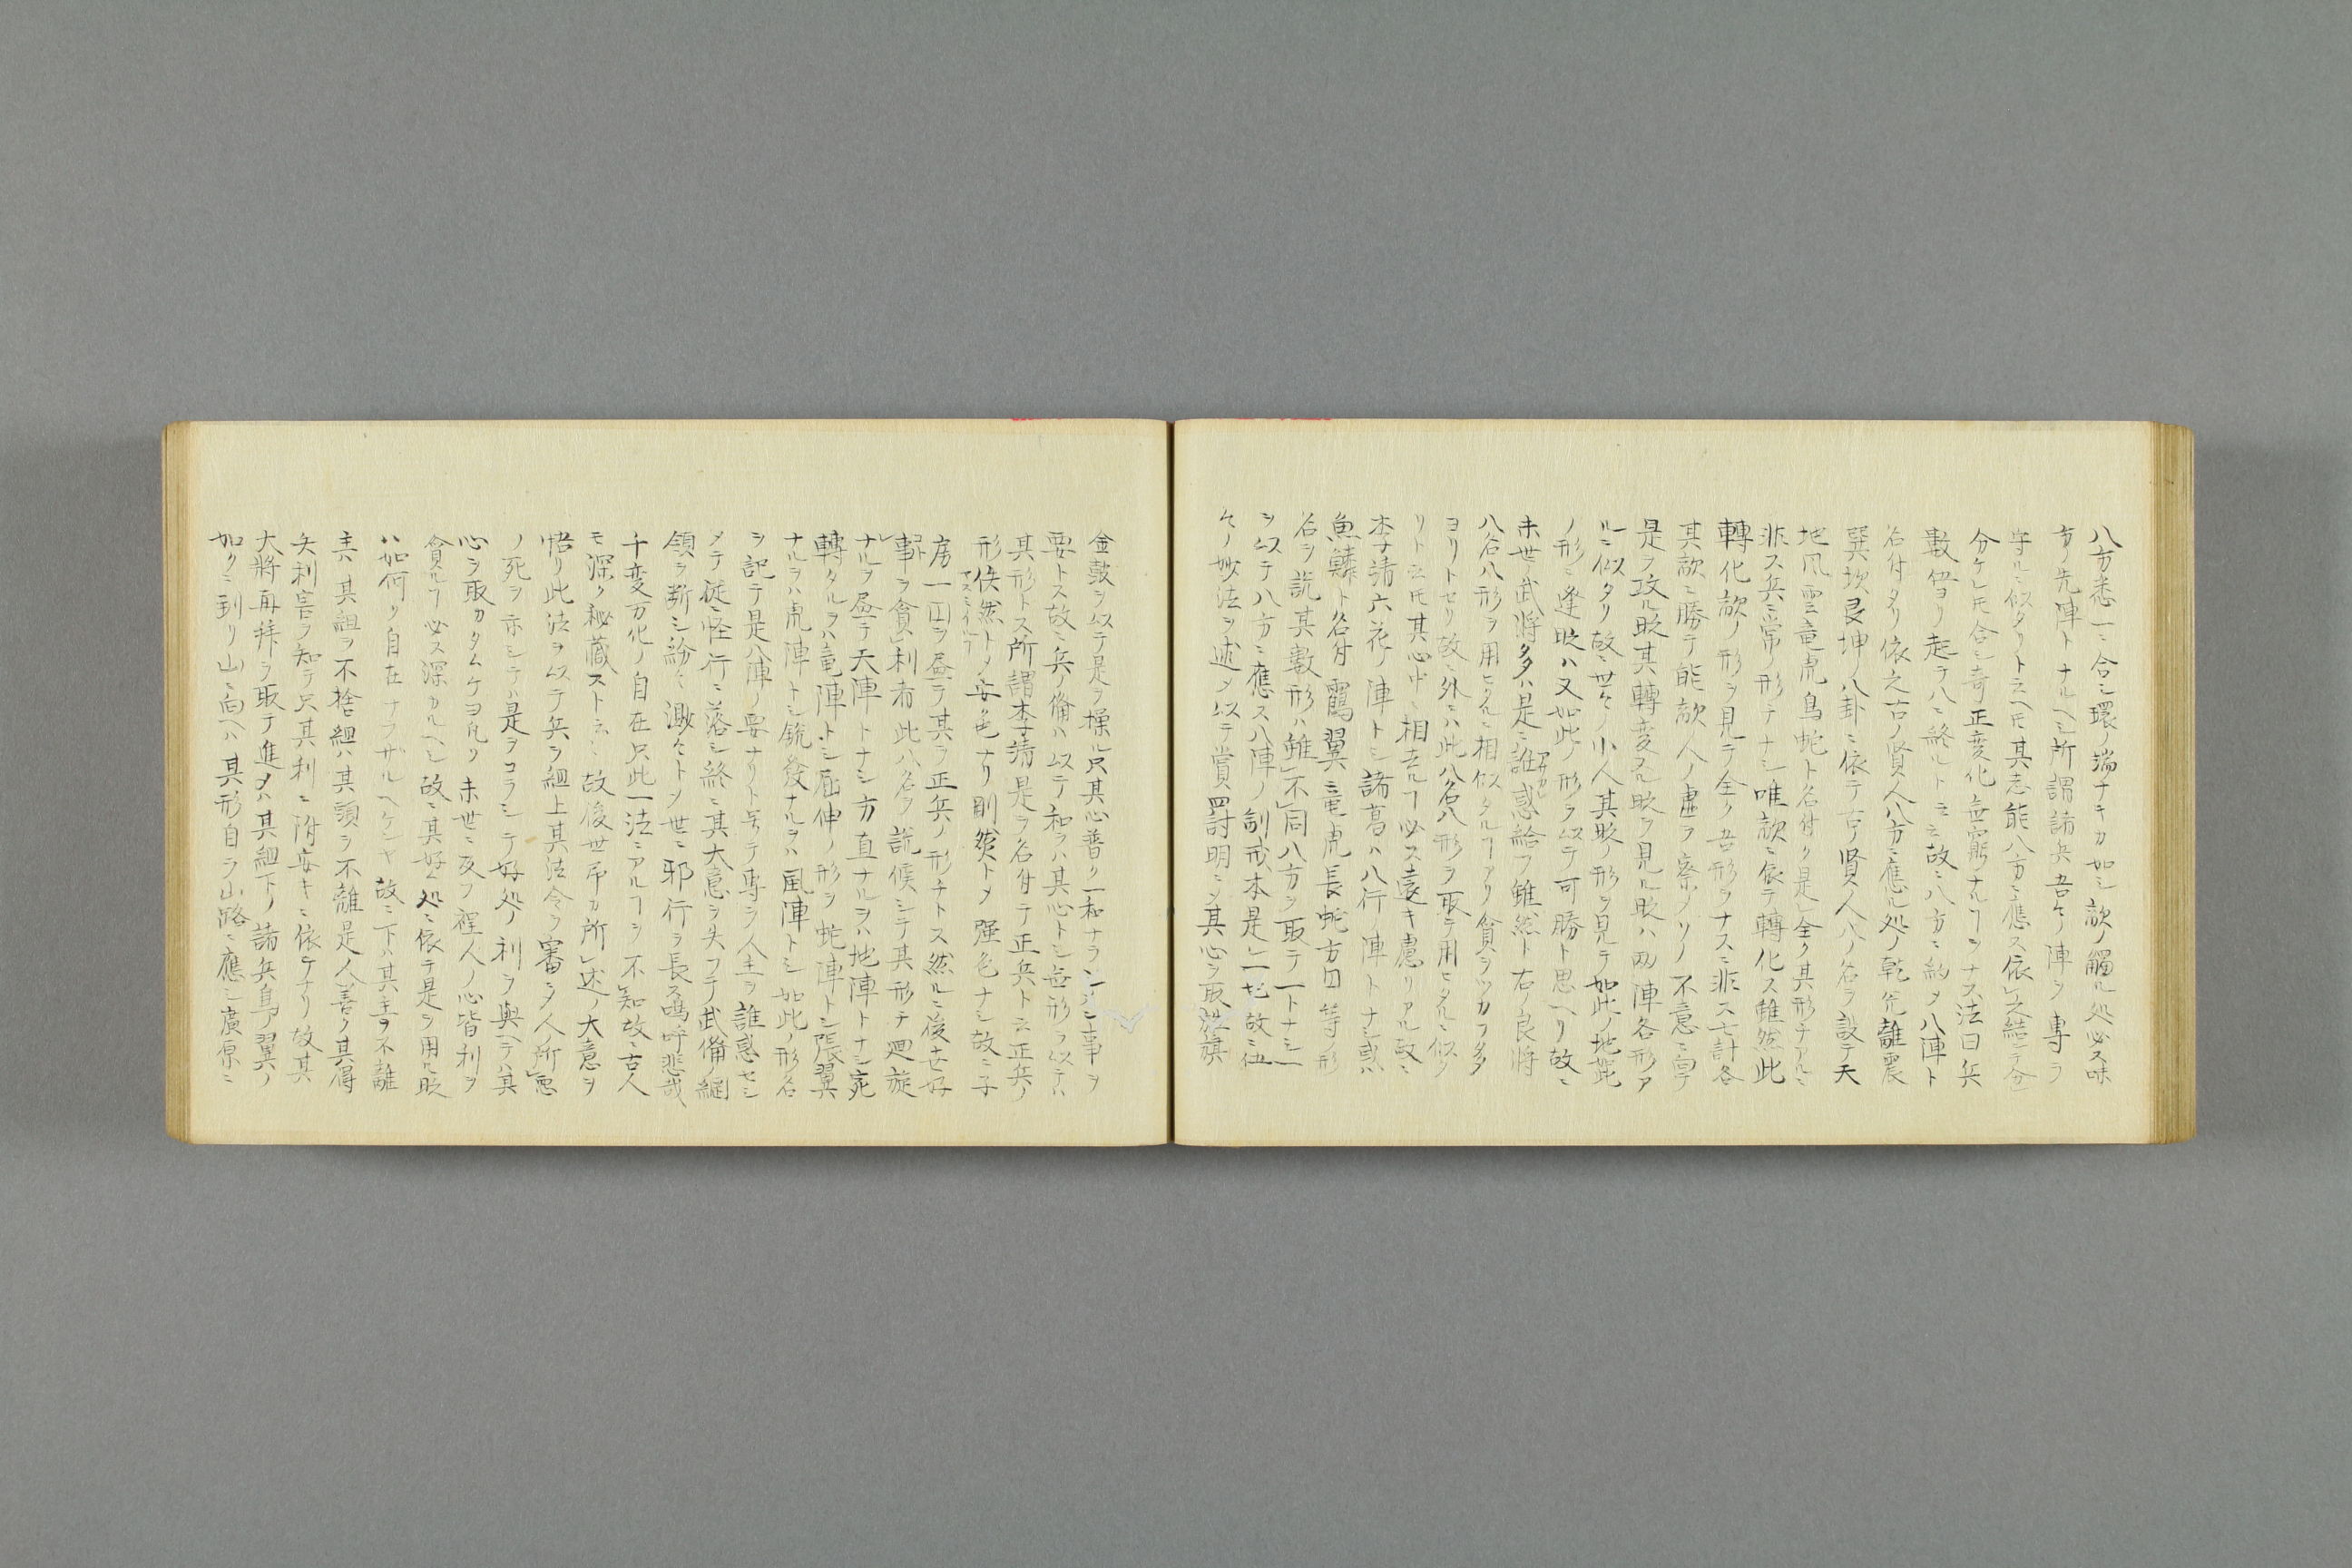 八方悉一ニ合シ環ノ端ナキカ如シ敵ノ觸ル処必ス味
方ノ先陣トナルヘシ所謂諸兵吾々ノ陣ヲ專ラ
守ルニ似タリト云ヘモ其志能八方ニ應ス依之結テ分
分ケレモ合シ奇正変化無窮ナルヿヲナス法曰兵
數 ヨリ起テ八ニ終ルト云故ニ八方ニ約メ八陣ト
名付タリ依之古ノ賢人八方ニ應ル処ノ乾兌離震
巽坎艮坤ノ八卦ニ依テ古ノ賢人八ノ名ヲ設テ天
地風雲竜虎鳥蛇ト名付ク是全ク其形チアルニ
非ス兵ニ常ノ形チナシ唯敵ニ依テ轉化ス雖然此
轉化敵ノ形ヲ見テ全ク吾形ヲナスニ非ス七計各
其敵ニ勝テ能敵人ノ虚ヲ察ノリノ不意ニ
是ヲ攻ル时其轉変スル时ヲ見ル时ハ四陣各形ア
ルニ似タリ故ニ世々ノ小人其时ノ形ヲ見テ如此ノ地
ノ形ニ逢时ハ又如此ノ形ヲ以テ可勝ト思ヘリ故ニ
末世ノ武將多クハ是ニ誑惑給フ雖然ト古ノ良將
八名八形ヲ用ヒタルニ相似タルヿアリ貪ラツカフ多
ヨリトセリ故ニ外ニハ此八名八形ヲ取テ用ヒタルニ似タ
リト云モ其心中ニ相去ルヿ必ス遠キ慮リアル故ニ
李靖六花ノ陣トシ諸葛ハ八行ノ陣トナシ或ハ
魚鱗ト名付鶴翼ニ竜虎長蛇方囚等ノ形
名ヲ説其數形ハ雖不同八方ヲ取テ一トナシ一
ヲ以テ八方ニ應ス八陣ノ訓戒本是一也故ニ伍
々ノ妙法ヲ述メ以テ賞罰明ニメ其心ヲ取旌旗
金鼓ヲ以テ是ヲ操ル只其心普ク一和ナランヿシ事ヲ
要トス故ニ兵ノ備ハ以テ和ラハ其心トシ無形ヲ以テハ
其形トス所謂李靖是ヲ名付テ正兵ト云正兵ノ
形佚然トメ安色ナリ則然トメ強色ナシ故ニ子
房一囚ヲ畾テ其ヲ正兵ノ形チトス然ルニ後世好
事ヲ貪利者此八名ヲ説候シテ其形チ廻旋
ナルヲ畾テ天陣トナシ方直ナルヲハ地陣トナシ宛
轉タルヲハ竜陣トシ屈伸ノ形ヲ蛇陣トシ張翼
ナルヲハ虎陣トシ銃發ナルヲハ風陣トシ如此ノ形名
ヲ記テ是八陣ノ要ナリト号テ專ラ人主ヲ誑惑セシ
メテ徒ニ怪行ニ落シ終ニ其大意ヲ失フテ武備ノ綱
領ヲ断シ紛々渺々トメ世ニ邪行ヲ長ス嗚呼悲哉
千変万化ノ自在只此一法ニアルヿヲ不知故ニ古人
モ深ク秘藏スト云ニ故後世吊カ所述ノ大意ヲ
悟リ此法ヲ以テ兵ヲ組上其法令ヲ審ニタ人ノ所悪
ノ死ヲ示シテハ是ヲコラシテ好処ノ利ヲ與ヘテハ其
心ヲ取カタムケヨ凡ソ末世ニ及フ裎人ノ心皆利ヲ
貪ルヿ必ス深カルヘシ故ニ其好ム処ニ依テ是ヲ用ル时
ハ如何ソ自在ナラザルヘケンヤ故ニ下ハ其主ヲ不離
主ハ其組ヲ不捨組ハ其頭ヲ不離是人善ク其得
矢利害ヲ知テ只其利ニ附安キニ依テナリ故其
大將再拝ヲ取テ進メハ其組下ノ諸兵鳥ノ翼ノ
如クニ到リ山ニ向ヘハ其形自ラ山路ニ應シ廣原ニ